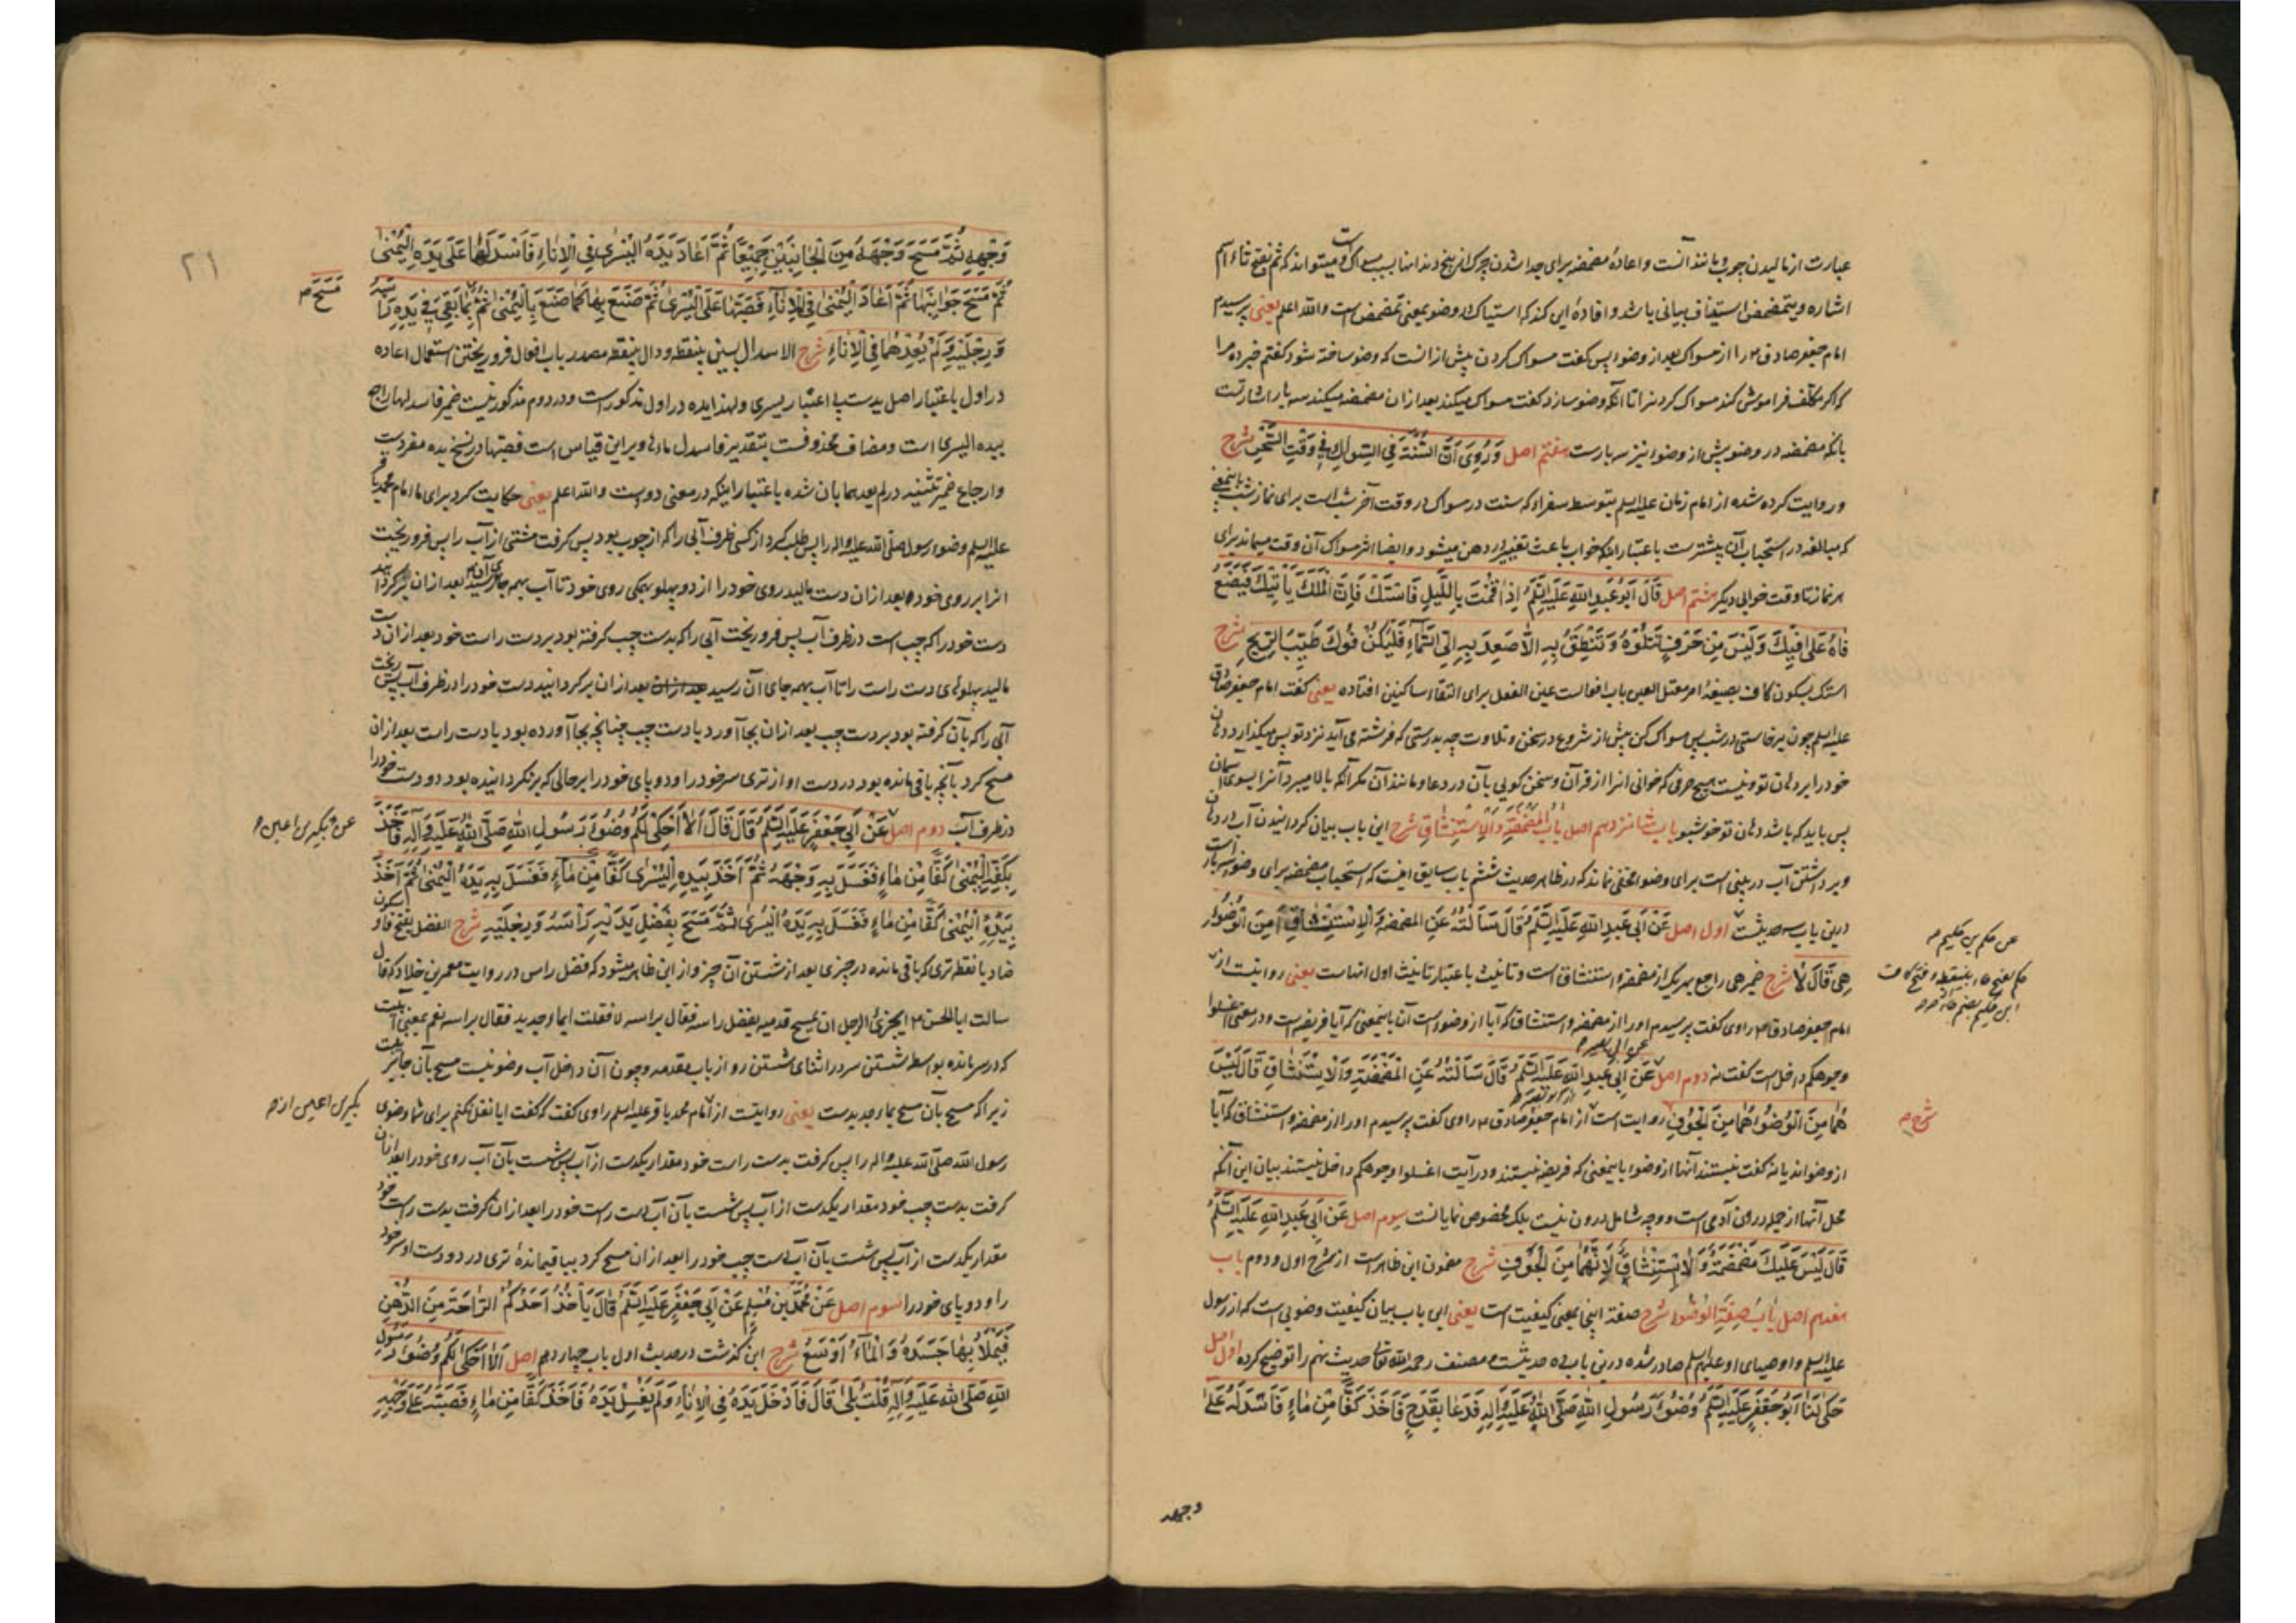 عبارت از مالیدن چوب و مانند آنست و اعادهٔ مضمضه برای جدا شدن چرک از بیخ دندانها بسبب مسواک است و میتواند که ثم بفتح ثاء اسم
اشاره و یتمضمض استیناف بیانی باشد و افادهٔ این کند که استیاک در وضو بمعنی تمضمض است والله اعلم یعنی پرسیدم
امام جعفر صادق ع را از مسواک بعد از وضو پس گفت مسواک کردن پیش از انست که وضو ساخته شود گفتم خبر ده مرا
که اگر مکلف فراموش کند مسواک کردنرا تا آنکه وضو سازد گفت مسواک میکند بعد ازان مضمضه میکند سه بار اشارتست
بانکه مضمضه در وضو پیش از وضو نیز سه بارست هفتم اصل وَرُوِیَ أَنَّ السُّنَّةَ فِی السِّوَاكِ فِی وَقْتِ السَّحَرِ شرح
و روایت کرده شده از امام زمان علیه السلم بتوسط سفراء که سنت در مسواک در وقت آخر شب است برای نماز شب باینمعنی
که مبالغه در استحباب آن بیشترست باعتبار انکه خواب باعث تغییر در دهن میشود و ایضا اثر مسواک آن وقت میماند برای
هر نماز تا وقت خوابی دیگر هشتم اصل قَالَ أَبُو عَبْدِ اللهِ عَلَیْهِ السَّلَمُ إِذَا قُمْتَ بِاللَّیْلِ فَاسْتَكْ فَإِنَّ الْمَلَكَ یَأْتِیكَ فَیَضَعُ
فَاهُ عَلَى فِیكَ وَلَیْسَ مِنْ حَرْفٍ تَتْلُوهُ وَتَنْطِقُ بِهِ إِلَّا صَعِدَ بِهِ إِلَى السَّمَاءِ فَلْیَكُنْ فُوكَ طَیِّبَ الرِّیحِ شرح
استک بسکون کاف بصیغهٔ امر معتل العین باب افعالست عین الفعل برای التقاء ساکنین افتاده یعنی گفت امام جعفر صادق
علیه السلم چون برخاستی در شب پس مسواک کن پیش از شروع در سخن و تلاوت چه بدرستی که فرشته می آید نزد تو پس میگذارد دهان
خود را بر دهان تو و نیست هیچ حرفی که خوانی انرا از قرآن و سخن گویی بآن در دعا و مانند آن مگر آنکه بالا میبرد آنرا بسوی آسمان
پس باید که باشد دهان تو خوشبو باب شانزدهم اصل بَابُ الْمَضْمَضَةِ وَالْاِسْتِنْشَاقِ شرح این باب بیان گردانیدن آب در دهان
و برداشتن آب در بینی است برای وضو مخفی نماند که در ظاهر حدیث ششم باب سابق اینست که استحباب مضمضه برای وضو سه بار است
درین باب سه حدیثست اول اصل عَنْ أَبِی عَبْدِ اللهِ عَلَیْهِ السَّلَمُ قَالَ سَأَلْتُهُ عَنِ الْمَضْمَضَةِ وَالْاِسْتِنْشَاقِ أَمِنَ الْوُضُوءِ
هِیَ قَالَ لَا شرح ضمیر هی راجع بهر یک از مضمضه و استنشاق است و تانیث باعتبار تانیث اول انهاست یعنی روایتست از
امام جعفر صادق ع راوی گفت پرسیدم او را از مضمضه و استنشاق که آیا از وضوء است آن باینمعنی که آیا فریضه است و در معنی اغسلوا
وجوهکم داخل است گفت نه دوم اصل عَنْ أَبِی عَبْدِ اللهِ عَلَیْهِ السَّلَمُ قَالَ سَأَلْتُهُ عَنِ الْمَضْمَضَةِ وَالْاِسْتِنْشَاقِ قَالَ لَیْسَ
هُمَا مِنَ الْوُضُوءِ هُمَا مِنَ الْجَوْفِ روایت است از امام جعفر صادق ع راوی گفت پرسیدم او را از مضمضه و استنشاق که آیا
از وضو اند یا نه گفت نیستند آنها از وضو باینمعنی که فریضه نیستند و در آیت اغسلوا وجوهکم داخل نیستند بیان این آنکه
محل آنها از جمله درون آدمی است و وجه شامل درون نیست بلکه مخصوص نمایانست سوم اصل عَنْ أَبِی عَبْدِ اللهِ عَلَیْهِ السَّلَمُ
قَالَ لَیْسَ عَلَیْكَ مَضْمَضَةٌ وَلَا اسْتِنْشَاقٌ لِأَنَّهُمَا مِنَ الْجَوْفِ شرح مضمون این ظاهر است از شرح اول و دوم باب
هفدهم اصل بَابُ صِفَةِ الْوُضُوءِ شرح صفة اینجا بمعنی کیفیت است یعنی این باب بیان کیفیت وضویی است که از رسول
علیه السلم و اوصیای او علیهم السلم صادر شده درین باب ده حدیثست و مصنف رحمه الله تعالی حدیث نهم را توضیح کرده اول اصل
حَكَى لَنَا أَبُو جَعْفَرٍ عَلَیْهِ السَّلَمُ وُضُوءَ رَسُولِ اللهِ صَلَّى اللهُ عَلَیْهِ وَآلِهِ فَدَعَا بِقَدَحٍ فَأَخَذَ كَفًّا مِنْ مَاءٍ فَأَسْدَلَهُ عَلَى
وجهه
عن حکم بن حکیم
حکم بفتح حاء بینقطه و فتح کاف
ابن حکیم بضم حاء
شرح
۲۱
وَجْهِهِ ثُمَّ مَسَحَ وَجْهَهُ مِنَ الْجَانِبَیْنِ جَمِیعًا ثُمَّ أَعَادَ یَدَهُ الْیُسْرَى فِی الْإِنَاءِ فَأَسْدَلَهَا عَلَى یَدِهِ الْیُمْنَى
ثُمَّ مَسَحَ جَوَانِبَهَا ثُمَّ أَعَادَ الْیُمْنَى فِی الْإِنَاءِ فَصَبَّهَا عَلَى الْیُسْرَى ثُمَّ صَنَعَ بِهَا كَمَا صَنَعَ بِالْیُمْنَى ثُمَّ بِمَا بَقِیَ فِی یَدِهِ رَأْسَهُ
وَرِجْلَیْهِ وَلَمْ یُعِدْهُمَا فِی الْإِنَاءِ شرح الاسدال بسین بینقطه و دال بینقطه مصدر باب افعال فرو ریختن استعمال اعاده
در اول باعتبار اصل یدست بی اعتبار یسری و لهذا یده در اول مذکور است و در دوم مذکور نیست ضمیر فاسدلها راجع
بیده الیسری است و مضاف محذوفست بتقدیر فاسدل ماءها و برین قیاس است فصبها در نسخ یده مفردست
و ارجاع ضمیر تثنیه در لم یعدهما بان شده باعتبار اینکه در معنی دو است والله اعلم یعنی حکایت کرد برای ما امام محمد باقر
علیه السلم وضوء رسول صلّی الله علیه واله را پس طلب کرد از کسی ظرف آبی را که از چوب بود پس گرفت مشتی از آب را پس فرو ریخت
انرا بر روی خود بعد ازان دست مالید روی خود را از دو پهلو بهمگی روی خود تا آب بهمه جای آن رسید بعد ازان برگردانید
دست خود را که چپ است در ظرف آب پس فرو ریخت آبی را که بدست چپ گرفته بود بر دست راست خود بعد ازان دست
مالید پهلوهای دست راست را تا آب بهمه جای آن رسید بعد ازان برگردانید دست خود را در ظرف آب پس ریخت
آبی را که بآن گرفته بود بر دست چپ بعد ازان بجا آورد با دست چپ چنانچه بجا آورده بود با دست راست بعد ازان
مسح کرد بآنچه باقی مانده بود در دست او از تری سر خود را و دو پای خود را بر حالی که برنگردانیده بود دو دست خود را
در ظرف آب دوم اصل عَنْ أَبِی جَعْفَرٍ عَلَیْهِ السَّلَمُ قَالَ قَالَ أَلَا أَحْكِی لَكُمْ وُضُوءَ رَسُولِ اللهِ صَلَّى اللهُ عَلَیْهِ وَآلِهِ فَأَخَذَ
بِكَفِّهِ الْیُمْنَى كَفًّا مِنْ مَاءٍ فَغَسَلَ بِهِ وَجْهَهُ ثُمَّ أَخَذَ بِیَدِهِ الْیُسْرَى كَفًّا مِنْ مَاءٍ فَغَسَلَ بِهِ یَدَهُ الْیُمْنَى ثُمَّ أَخَذَ
بِیَدِهِ الْیُمْنَى كَفًّا مِنْ مَاءٍ فَغَسَلَ بِهِ یَدَهُ الْیُسْرَى ثُمَّ مَسَحَ بِفَضْلِ یَدَیْهِ رَأْسَهُ وَرِجْلَیْهِ شرح الفضل بفتح فا و سکون
ضاد بانقطه تری که باقی مانده در چیزی بعد از شستن آن چیز و از این ظاهر میشود که فضل راس در روایت معمر بن خلاد که قال
سالت ابا الحسن ع ایجزئ الرجل ان یمسح قدمیه بفضل راسه فقال براسه لا فقلت ابماء جدید فقال براسه نعم بمعنی آبیست
که در سر مانده بواسطه شستن سر در اثنای شستن رو از باب مقدمه و چون آن داخل آب وضو نیست مسح بآن جایز نیست
زیرا که مسح بآن مسح بماء جدیدست یعنی روایتست از امام محمد باقر علیه السلم راوی گفت که گفت ایا نقل نکنم برای شما وضوی
رسول الله صلّی الله علیه واله را پس گرفت بدست راست خود مقدار یکدست از آب پس شست بآن آب روی خود را بعد ازان
گرفت بدست چپ خود مقدار یکدست از آب پس شست بآن آب دست راست خود را بعد ازان گرفت بدست راست خود
مقدار یکدست از آب پس شست بآن آب دست چپ خود را بعد ازان مسح کرد بباقیماندهٔ تری در دو دست او سر خود
را و دو پای خود را سوم اصل عَنْ مُحَمَّدِ بْنِ مُسْلِمٍ عَنْ أَبِی جَعْفَرٍ عَلَیْهِ السَّلَمُ قَالَ یَأْخُذُ أَحَدُكُمُ الرَّاحَةَ مِنَ الدُّهْنِ
فَیَمْلَأُ بِهَا جَسَدَهُ وَالْمَاءُ أَوْسَعُ شرح این گذشت در حدیث اول باب چهاردهم اصل أَلَا أَحْكِی لَكُمْ وُضُوءَ رَسُولِ
اللهِ صَلَّى اللهُ عَلَیْهِ وَآلِهِ قُلْتُ بَلَى قَالَ فَأَدْخَلَ یَدَهُ فِی الْإِنَاءِ وَلَمْ یَغْسِلْ یَدَهُ فَأَخَذَ كَفًّا مِنْ مَاءٍ فَصَبَّهُ عَلَى وَجْهِهِ
مَسَحَ
عن بکیر بن اعین
بکیر بن اعین از